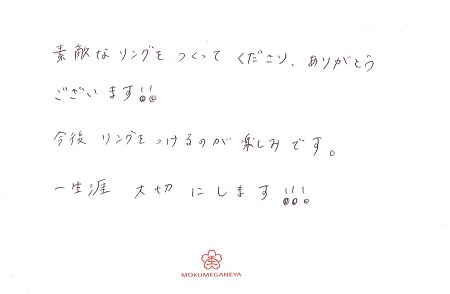 素敵なリングをつくってくださり、ありがとう
ございます!!
今後リングをつけるのが楽しみです。
一生涯 大切にします!!!
MOKUMEGANEYA